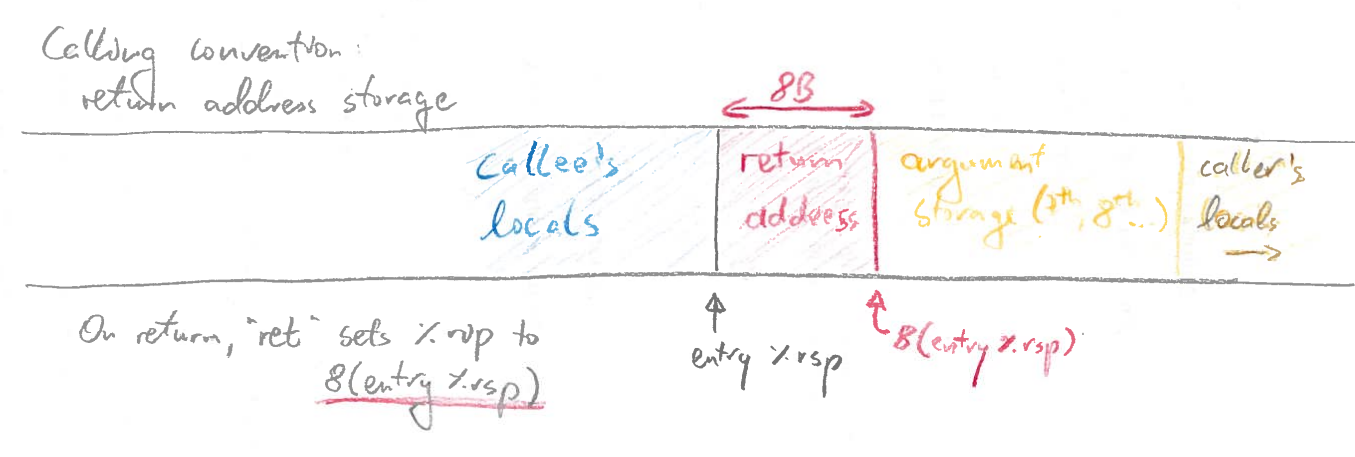 Calling convention:
return address storage
8B
callee's
locals
return
address
argument
storage (7th, 8th...)
caller's
locals
On return, "ret" sets %rip to
8(entry %rsp)
entry %rsp
8(entry %rsp)